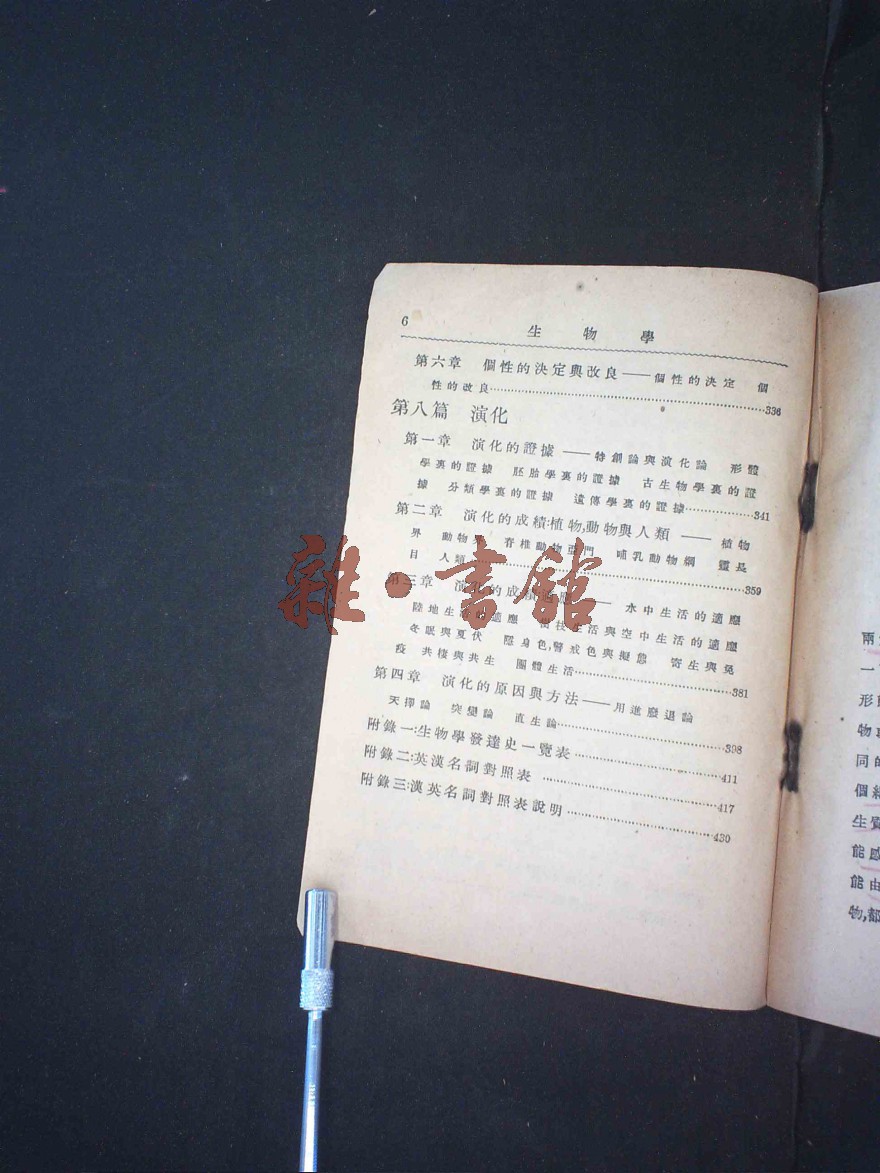 6
生物學
第六章 個性的決定與改良——個性的決定 個
性的改良……336
第八篇 演化
第一章 演化的證據——特創論與演化論 形體
學裏的證據 胚胎學裏的證據 古生物學裏的證
據 分類學裏的證據 遺傳學裏的證據……341
第二章 演化的成績:植物,動物與人類——植物
界 動物 脊椎動物亞門 哺乳動物綱 靈長
目 人類……359
第三章 演化的成績:適應——水中生活的適應
陸地生活的適應 生活與空中生活的適應
冬眠與夏伏 隱身色,警戒色與擬態 寄生與免
疫 共棲與共生 團體生活……381
第四章 演化的原因與方法——用進廢退論
天擇論 突變論 直生論……398
附錄一:生物學發達史一覽表……411
附錄二:英漢名詞對照表……417
附錄三:漢英名詞對照表說明……430
雜·書館
兩
一
形
物
同的
個
生
能感
能由
物,都